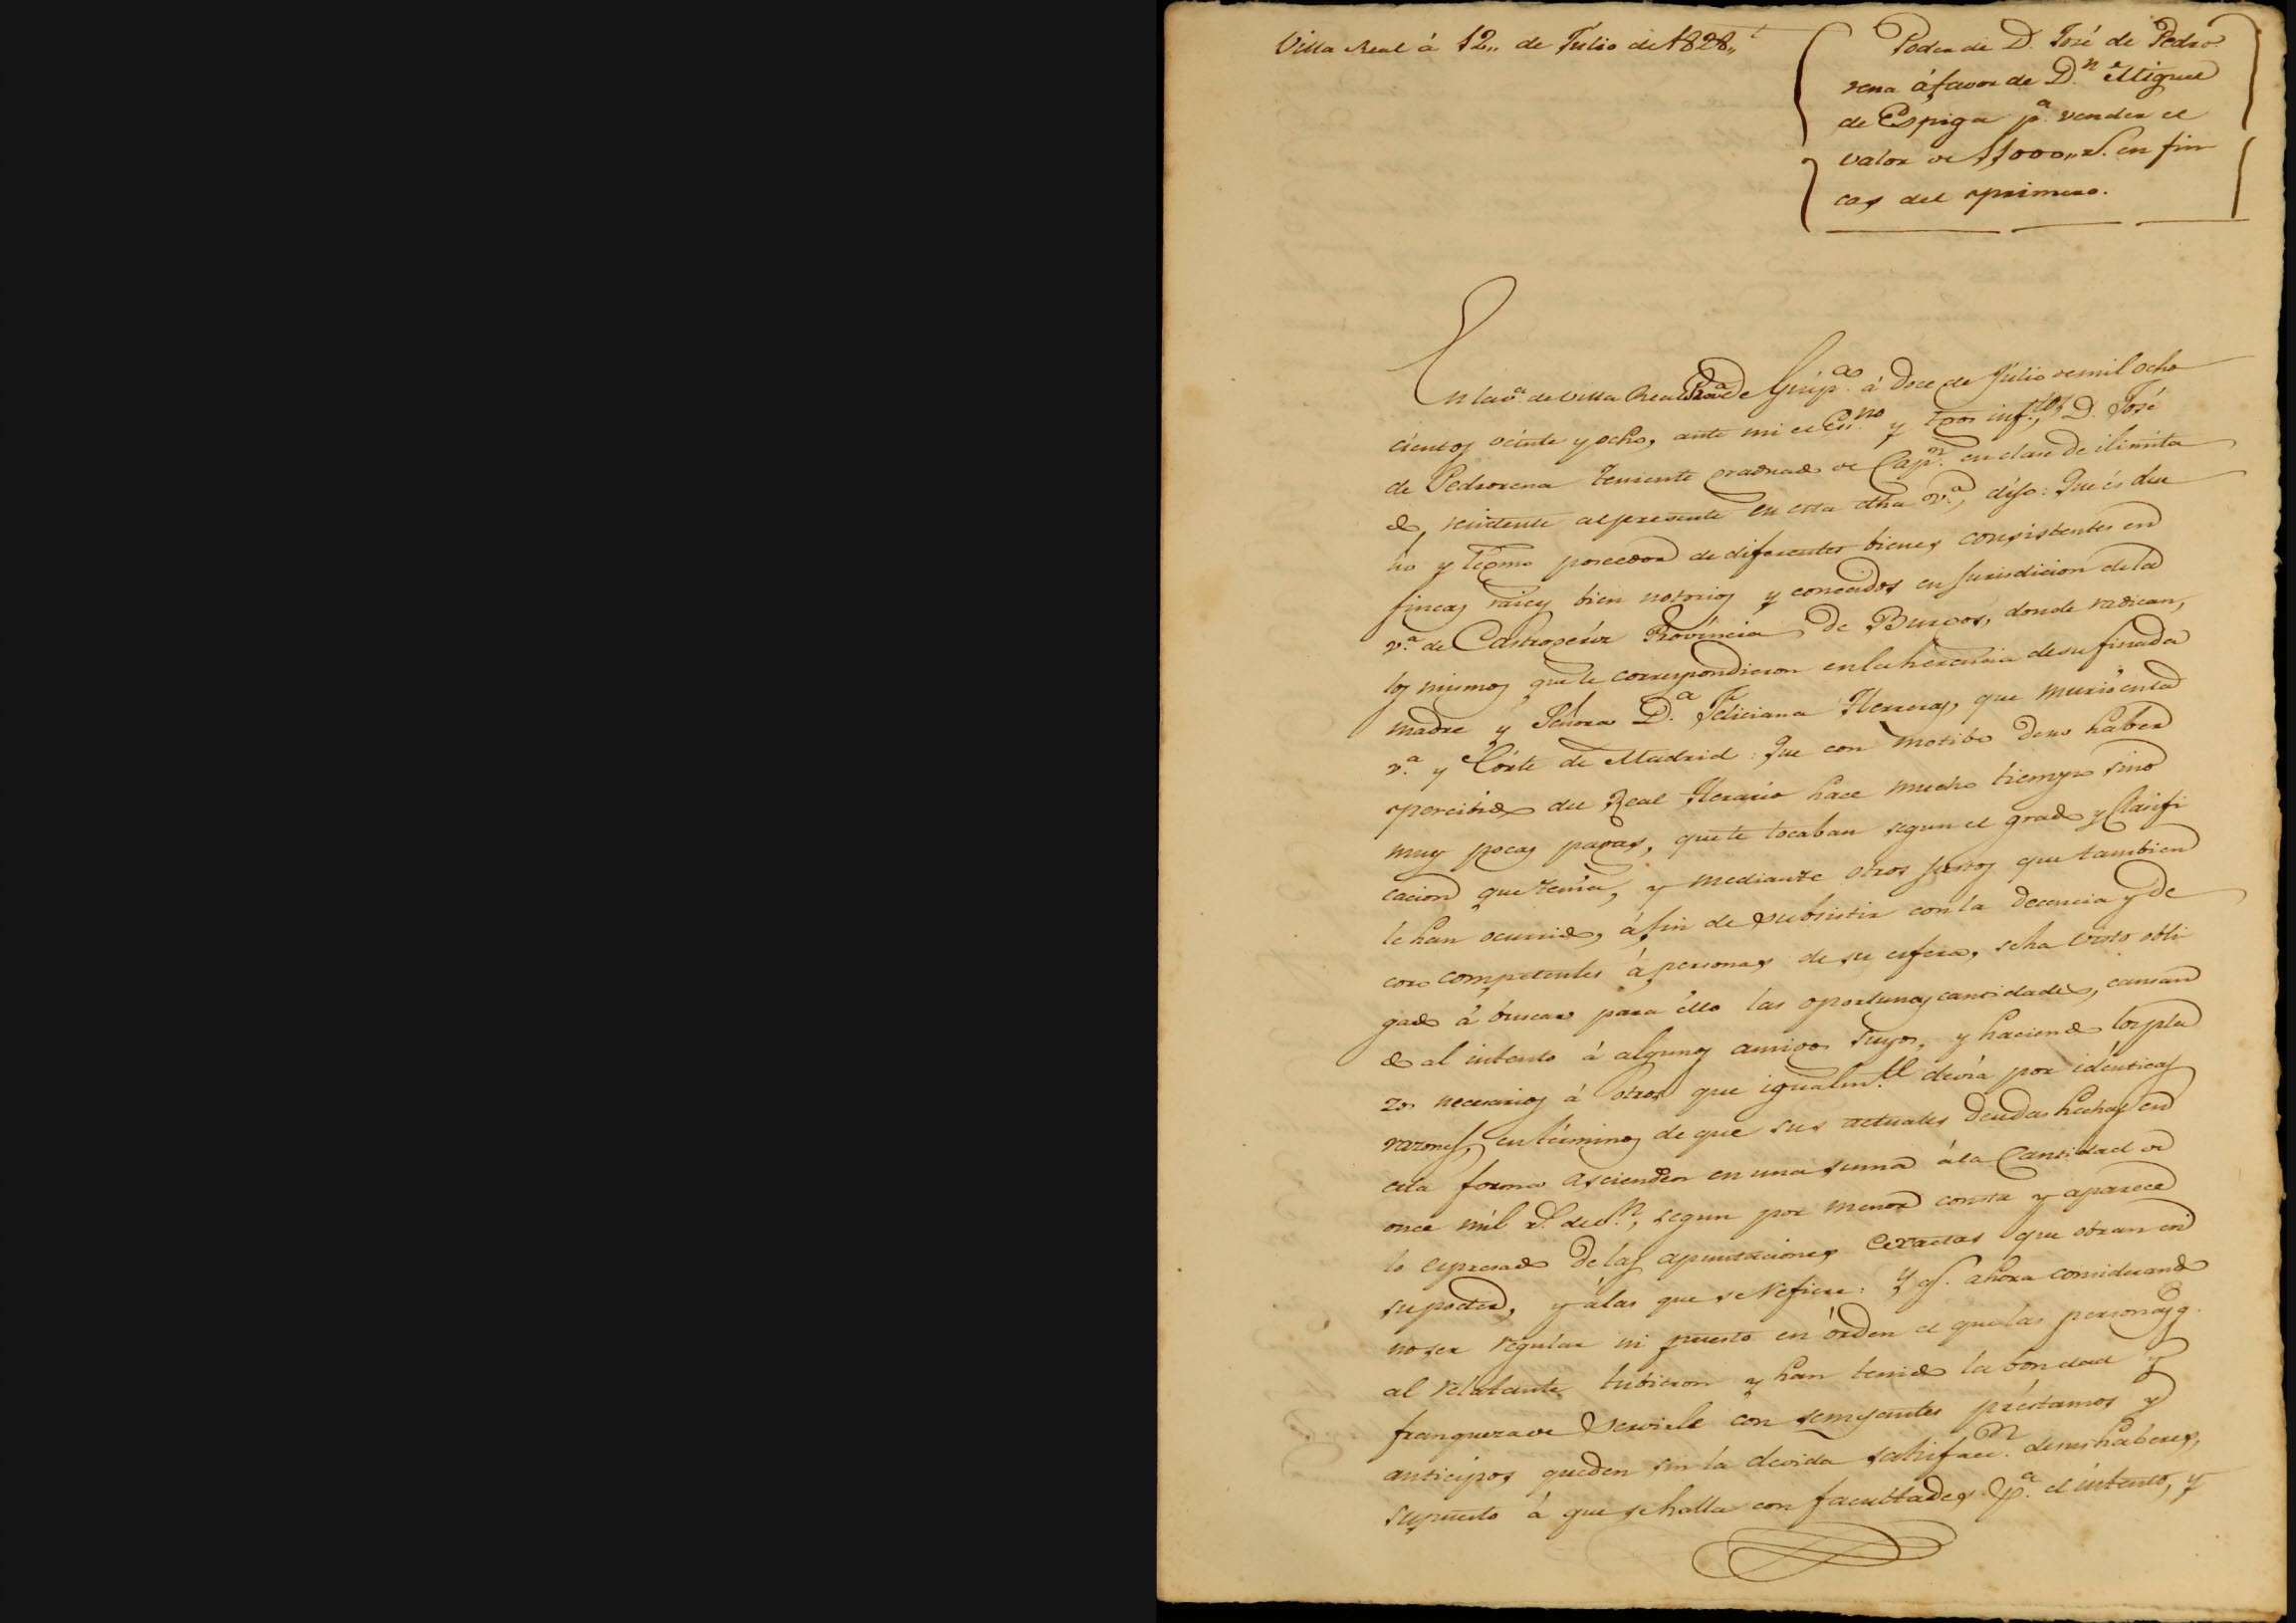 Villa Real á 12,, de Julio de 1828,,
Poder de D. José de Pedro-
rena á favor de D.n Miguel
de Espiga p.a vender el
valor de 11000,, r.s en fin-
cas del primero.
En la v.a de Villa Real Prov.a de Guip.coa á doce de Julio de mil ocho
cientos veinte y ocho, ante mi el Es.no y tgos inf.tos, D. José
de Pedrorena Teniente graduado de Cap.n en clase de ilimita
do, residente al presente en esta dha v.a, dijo: Que és due
ño y lexmo poseedor de diferentes bienes consistentes en
fincas raices bien notorios y conocidos en jurisdicion de la
v.a de Castrogeriz Provincia de Burgos, donde radican,
los mismos que le correspondieron en la herencia de su finada
madre y Señora D.a Feliciana Herreras, que murió en la
v.a y Córte de Madrid: Que con motibo de no haber
percibido del Real Herario hace mucho tiempo sino
muy pocas pagas, que le tocaban segun el grado y Clasifi
cacion que tenia, y mediante otros justos que tambien
le han ocurrido, á fin de subsistir con la decencia y de
coro competentes á personas de su esfera, se ha visto obli
gado á buscar para éllo las oportunas cantidades, cansan
do al intento á algunos amigos suyos, y haciendo los pla
zos necesarios á otros que igualm.te devia por idénticas
razones, en términos de que sus actuales deudas hechas en
esta forma ascienden en una suma á la Cantidad de
once mil r.s de v.n, segun por menor consta y aparece
lo expresado de las apuntaciones exactas que obran en
su poder, y á las que se refiere: Y q.e ahora considerando
no ser regular ni puesto en órden el que las personas q.
al relatante tubieron y han tenido la bondad y
franqueza de servirle con semejantes préstamos y
anticipos queden sin la devida satisfacc.n de sus haberes,
supuesto á que se halla con facultades p.a el intento, y